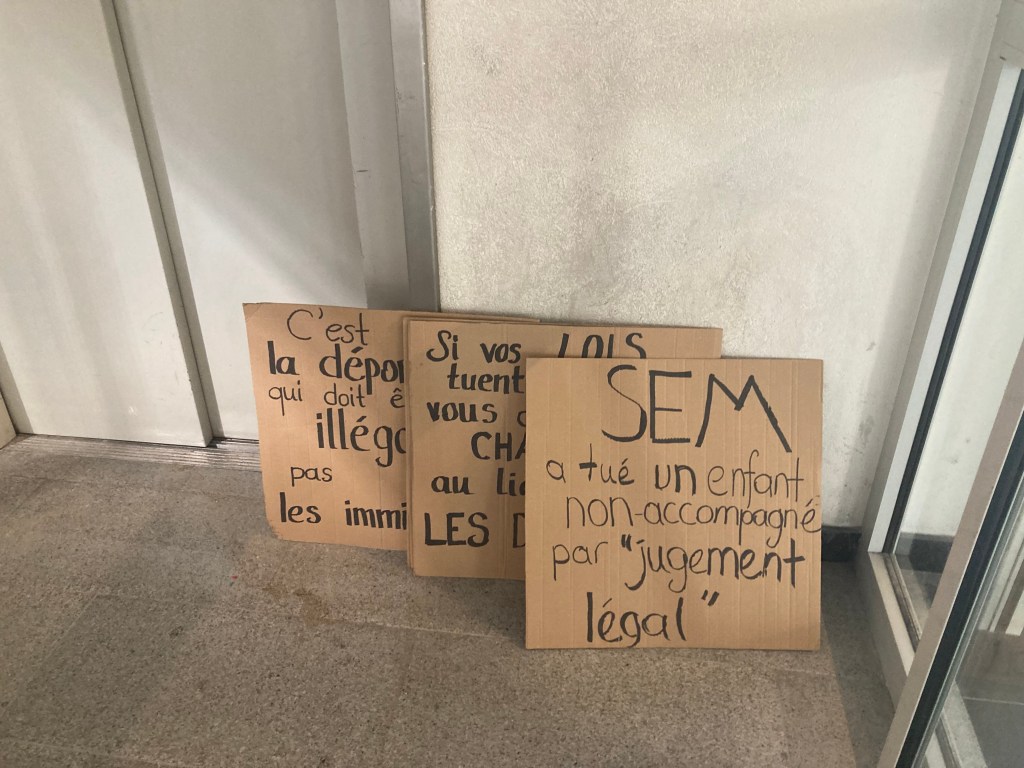 C'est
la dépor
qui doit ê
illéga
pas
les immi
Si vos LOIS
tuent
vous
CHA
au lie
LES D
SEM
a tué un enfant
non-accompagné
par "jugement
légal"